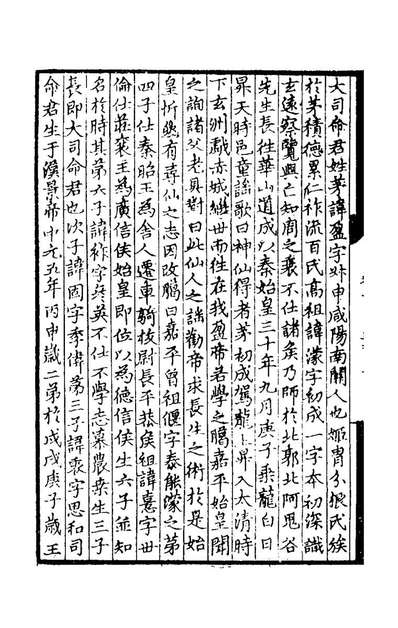 大司命君姓茅諱盈字叔申咸陽南關人也姬胄分根氏族
於茅積德累仁祚流百氏高祖諱濛字初成一字本初深識
玄遠察覽興亡知周之衰不仕諸矦乃師於北郭北阿鬼谷
先生長往華山道成以秦始皇三十年九月庚子乘龍白日
昇天時邑童謡歌曰神仙得者茅初成駕龍上昇入太清時
下玄洲戲赤城繼世而徃在我盈帝若學之臘嘉平始皇聞
之詢諸父老具對曰此仙人之謡勸帝求長生之術於是始
皇忻然有尋仙之志因改臘曰嘉平曾祖偃字泰能濛之第
四子仕秦昭王為舍人遷車騎校尉長平恭矦祖諱憙字世
倫仕莊襄王為廣信侯始皇即位以為德信侯生六子並知
名於時其第六子諱祚字彦英不仕不學志慕農桑生三子
長即大司命君也次子諱固字季偉第三子諱衷字思和司
命君生于漢景帝中元五年丙申歲二弟於戊戌庚子歲王